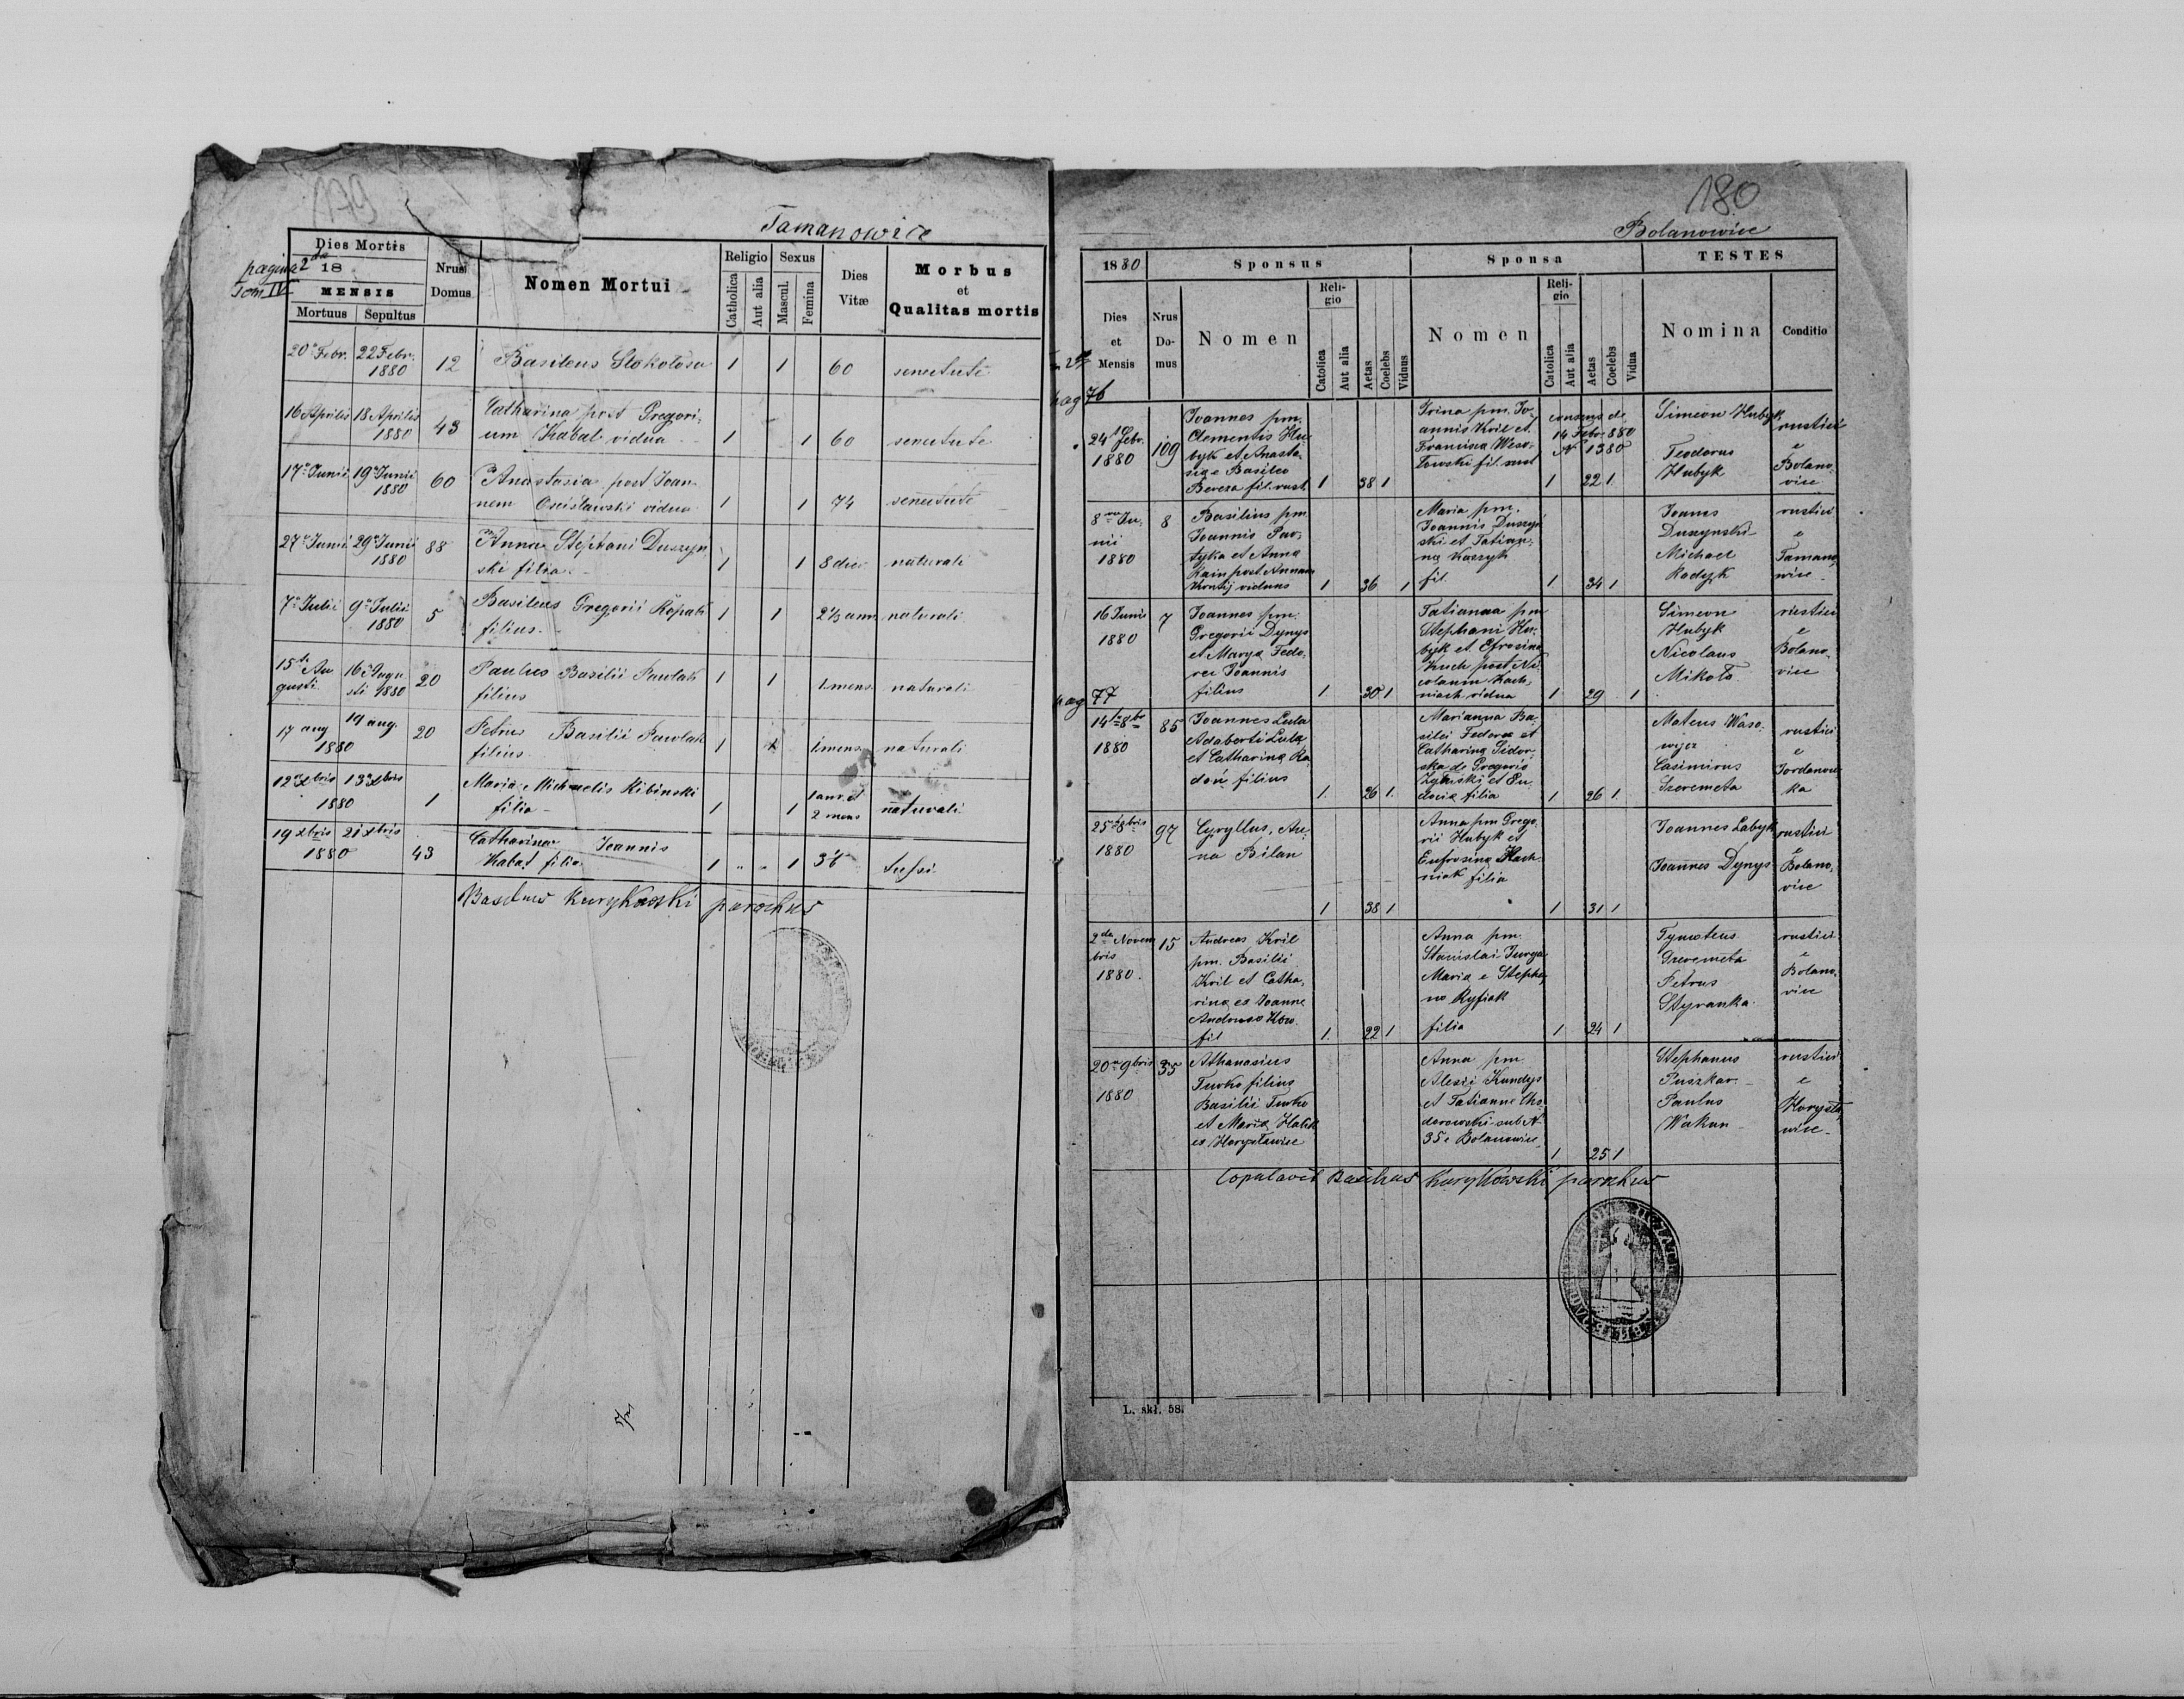 179
Tamanowice
pagina 2da
Tom IV
Dies Mortis
18
MENSIS
Mortuus Sepultus
Nrus Domus
Nomen Mortui
Religio
Catholica
Aut alia
Sexus
Mascul.
Femina
Dies Vitæ
Morbus
et
Qualitas mortis
20 Febr. 22 Febr. 1880 12 Basileus Stokolosa 1 1 60 senectute
16 Aprilis 18 Aprilis 1880 43 Catharina post Gregori-
um Kabal vidua 1 1 60 senectute
17 Junii 19 Junii 1880 60 Anastasia post Joan-
nem vidua 1 1 74 senectute
27 Junii 29 Junii 1880 88 Anna Stephani Duszyn
ski filia 1 1 8 dies naturali
7 Julii 9 Julii 1880 5 Basileus Gregorii Kopak
filius 1 1 2½ ann naturali
15 Au
gusti 16 Augu
sti 1880 20 Paulus Basilii Pawlak
filius 1 1 1 mens naturali
17 aug 19 aug.
1880 20 Petrus Basilii Pawlak
filius 1 1 1 mens naturali
12 Xbris 13 Xbris
1880 1 Maria Michaelis Kibinski
filia 1 1 1 ann. et
2 mens naturali
19 Xbris 21 Xbris
1880 43 Catharina Joannis
Kabal filia 1 " " 1 tussi
Basilius Kurykowski parochus
180
Bolanowice
1880
Sponsus
Sponsa
TESTES
Dies
et
Mensis
Nrus
Do-
mus
Nomen
Reli-
gio
Catolica
Aut alia
Aetas
Coelebs
Viduus
Nomen
Reli-
gio
Catolica
Aut alia
Aetas
Coelebs
Vidua
Nomina
Conditio
pag 76
24 Febr.
1880
109
Joannes pm.
Clementis Hu-
byk et Anasta-
sia e Basileo
Bereza fil. rust.
1 38 1
Irina pm. Jo-
annis Kril et
Francisca Weso-
lowski fil. rust
consens de
14 Febr. 880
N 1380
1 22 1
Simeon Hubyk
Teodorus
Hubyk
rustici
e
Bolano-
vice
8 Ju-
nii
1880
8
Basilius pm
Joannis Par-
tyka et Anna
Kain post Annam
viduus
1 36 1
Maria pm.
Joannis Duszyn
ski et Tatian-
na Kaszyk
fil.
1 34 1
Joanes
Duszynski
Michael
Kadyk
rustici
e
Tamano-
wice
16 Junii
1880
7
Joannes pm.
Gregorii Dynys
et Marya Fedo-
rec Joannis
filius
1 30 1
Tatianna pm
Stephani Hu-
byk et Efrosina
Kuch post Ni-
colaum Kach-
niach vidua
1 29 1
Simeon
Hubyk
Nicolaus
Mikoła
rustici
e
Bolano-
vice
pag 77
14 8br
1880
85
Joannes Lula
Adalberti Lula
et Catharina Ra-
doń filius
1 26 1
Marianna Ba-
silei Fedorec et
Catharina Sidor-
ska de Gregorio
et Eu-
docia filia
1 26 1
Mateus Waso-
wijez
Casimirus
Szeremeta
rustici
e
Jordanow-
ka
25 8bris
1880
97
Cyryllus, An-
na Bilan
1 38 1
Anna pm Grego-
rii Hubyk et
Eufrosina Kach
niak filia
1 31 1
Joannes Labyk
Joannes Dynys
rustici
e
Bolano-
vice
2da Novem
bris
1880
15
Andreas Kril
pm. Basilii
Kril et Catha-
rina ex Joanne
fil
1 22 1
Anna pm.
Stanislai Jurga
Maria e Stepha-
no Ryfiak
filia
1 24 1
Tymoteus
Szeremeta
Petrus
Styranka
rustici
e
Bolano-
vice
20 9bris
1880
35
Athanasius
Turko filius
Basilii Turko
et Maria Halik
ex Horysławice
Anna pm
Alexii Kundys
et Tatianne Cho-
dorowski sub N
35 e Bolanowice
1 25 1
Stephanus
Puszkar
Paulus
Wakun
rustici
e
Horysła-
wice
Copulavit Basilius Kurykowski parochus
L. skł. 58.